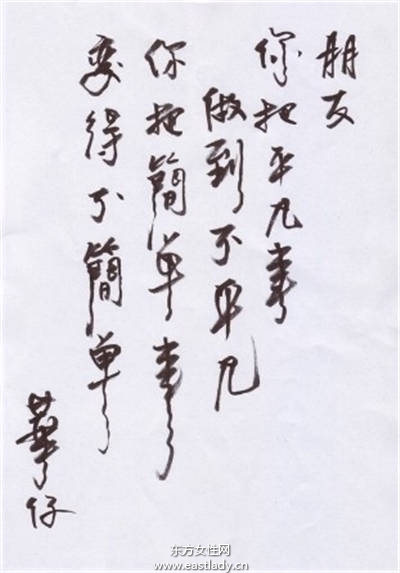 朋友
你把平凡事
做到不平凡
你把簡单事
变得不簡单
華仔
东方女性网
www.eastlady.cn